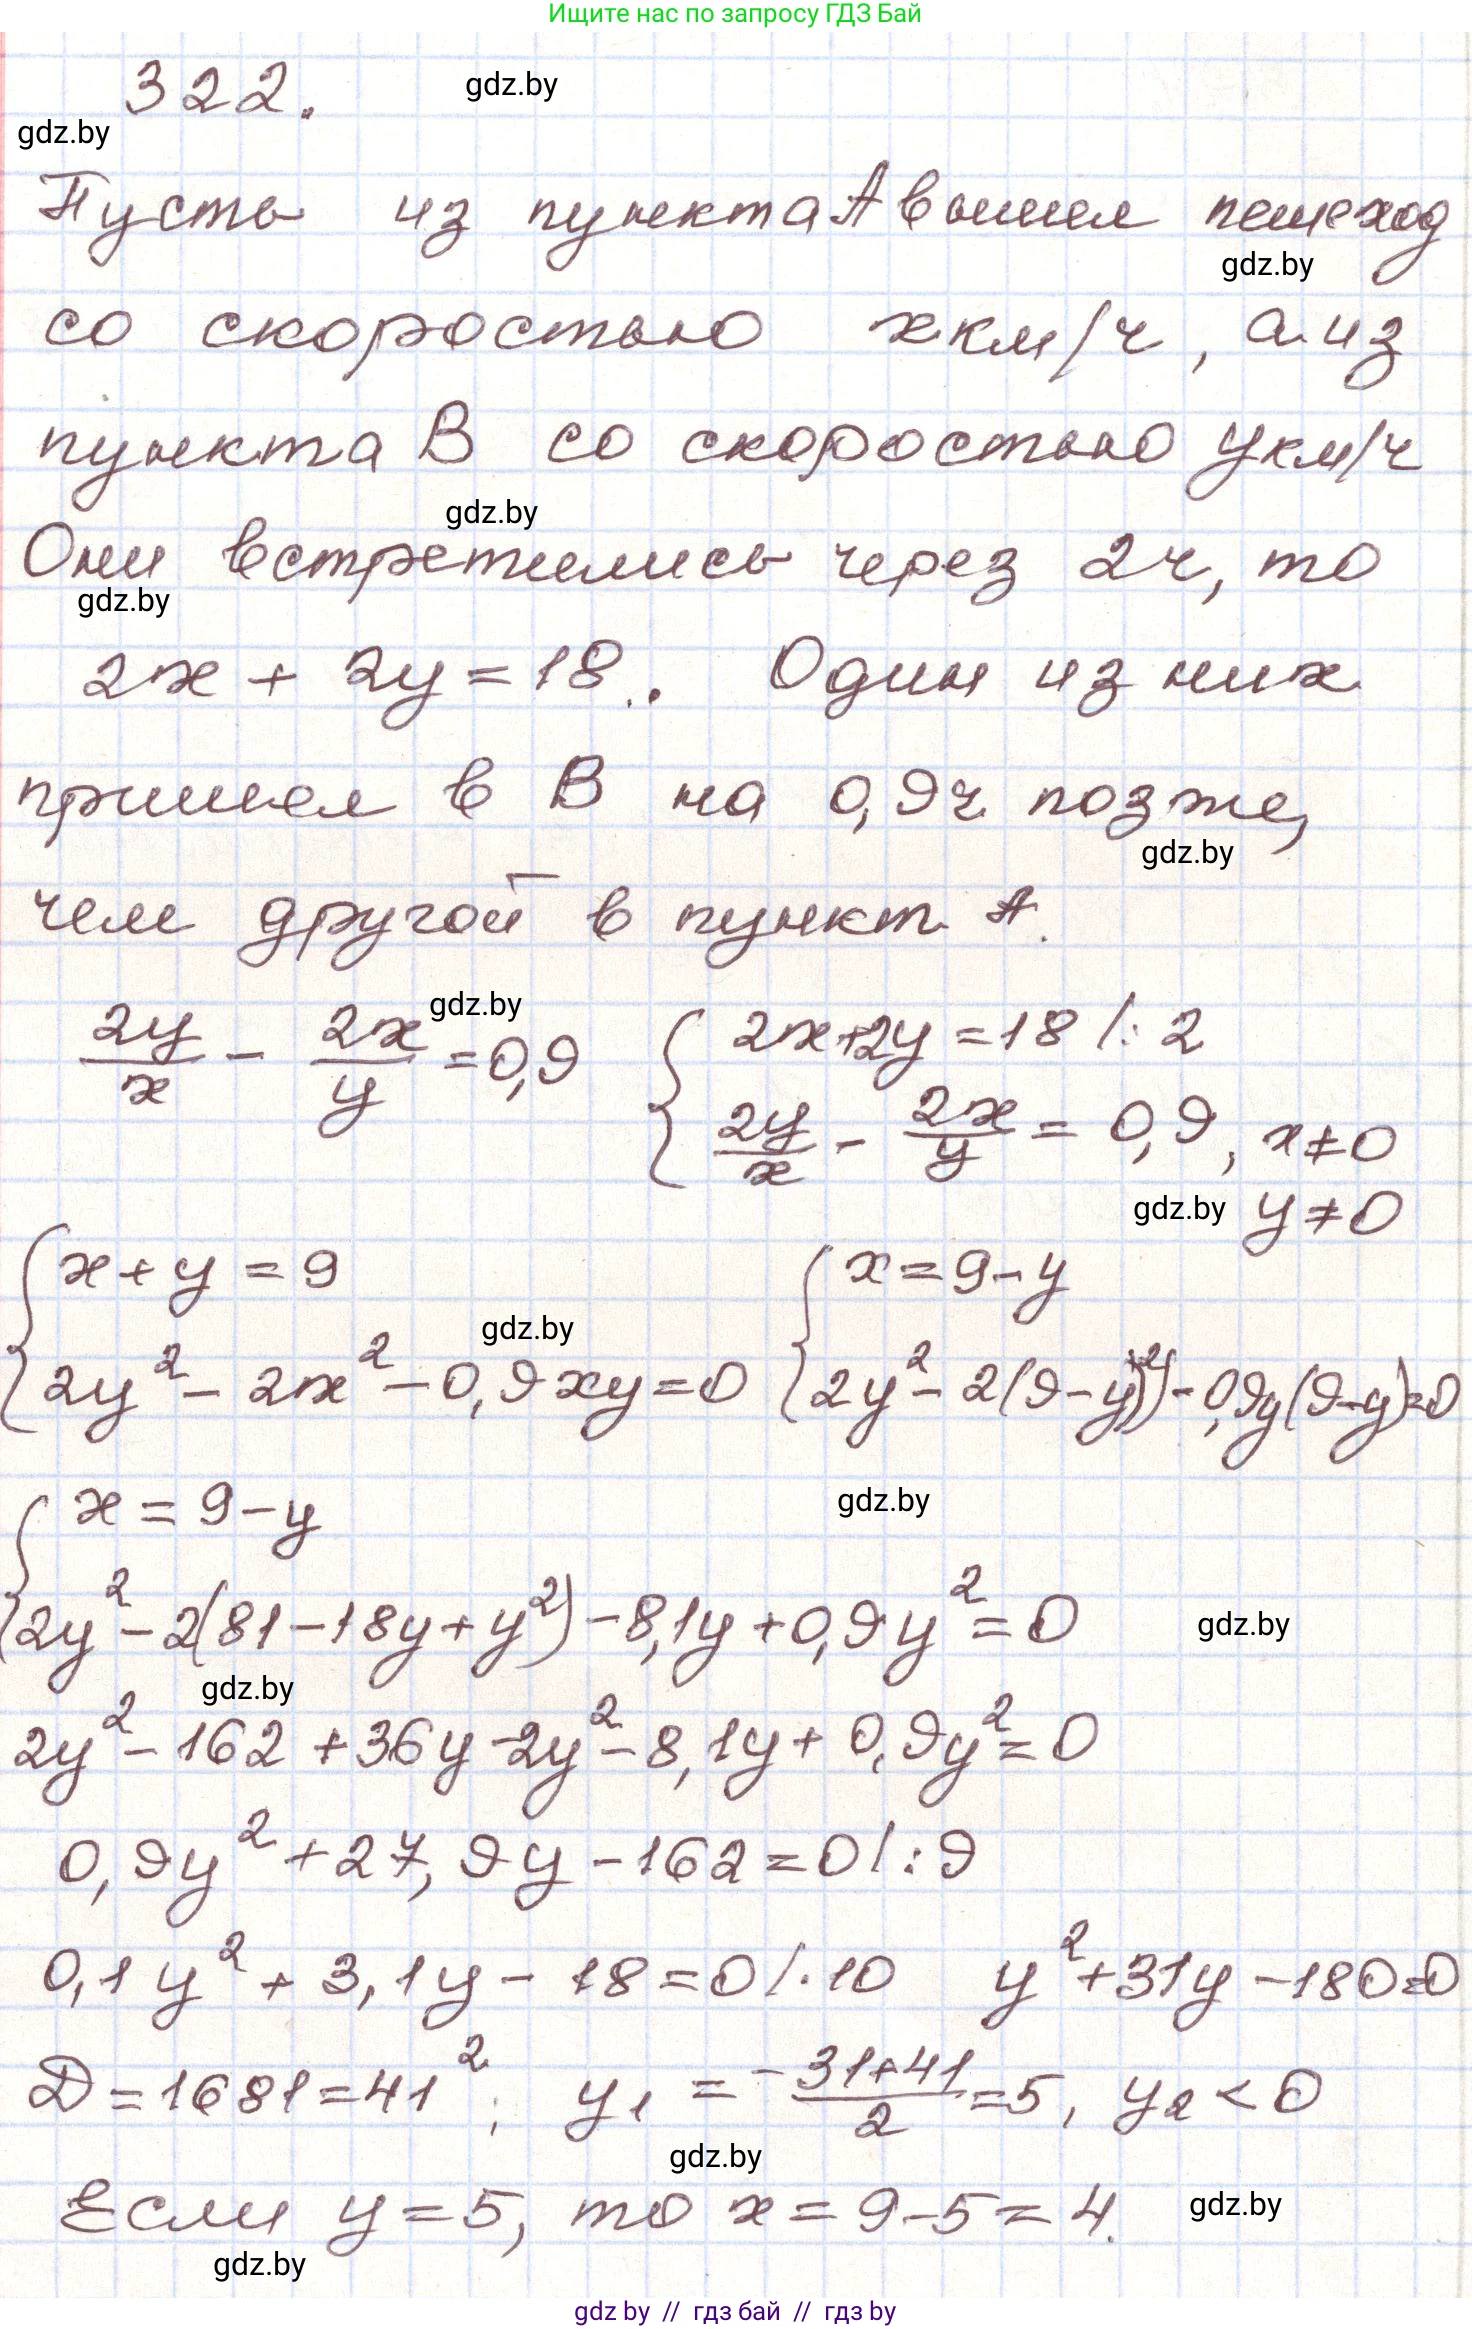 Ищите нас по запросу ГДЗ Бай
322.
gdz.by
gdz.by
Пусть из пункта А вышел пешеход
gdz.by
со скоростью x км/ч, а из
пункта В со скоростью y км/ч
gdz.by
Они встретились через 2ч, то
gdz.by
2x + 2y = 18. Один из них
пришел в В на 0,9ч позже,
gdz.by
чем другой в пункт А.
gdz.by
2y/x - 2x/y = 0,9 { 2x+2y = 18 |: 2
2y/x - 2x/y = 0,9, x≠0
gdz.by y≠0
{ x + y = 9 { x = 9 - y
gdz.by
2y² - 2x² - 0,9xy = 0 2y² - 2(9-y)² - 0,9y(9-y)=0
{ x = 9 - y
gdz.by
2y² - 2(81 - 18y + y²) - 8,1y + 0,9y² = 0
gdz.by
gdz.by
2y² - 162 + 36y - 2y² - 8,1y + 0,9y² = 0
0,9y² + 27,9y - 162 = 0 |: 9
0,1y² + 3,1y - 18 = 0 |·10 y² + 31y - 180=0
Д = 1681 = 41²; y₁ = -31+41/2 = 5, y₂ < 0
gdz.by
Если y = 5, то x = 9 - 5 = 4.
gdz.by
gdz.by
gdz by // гдз бай // гдз by